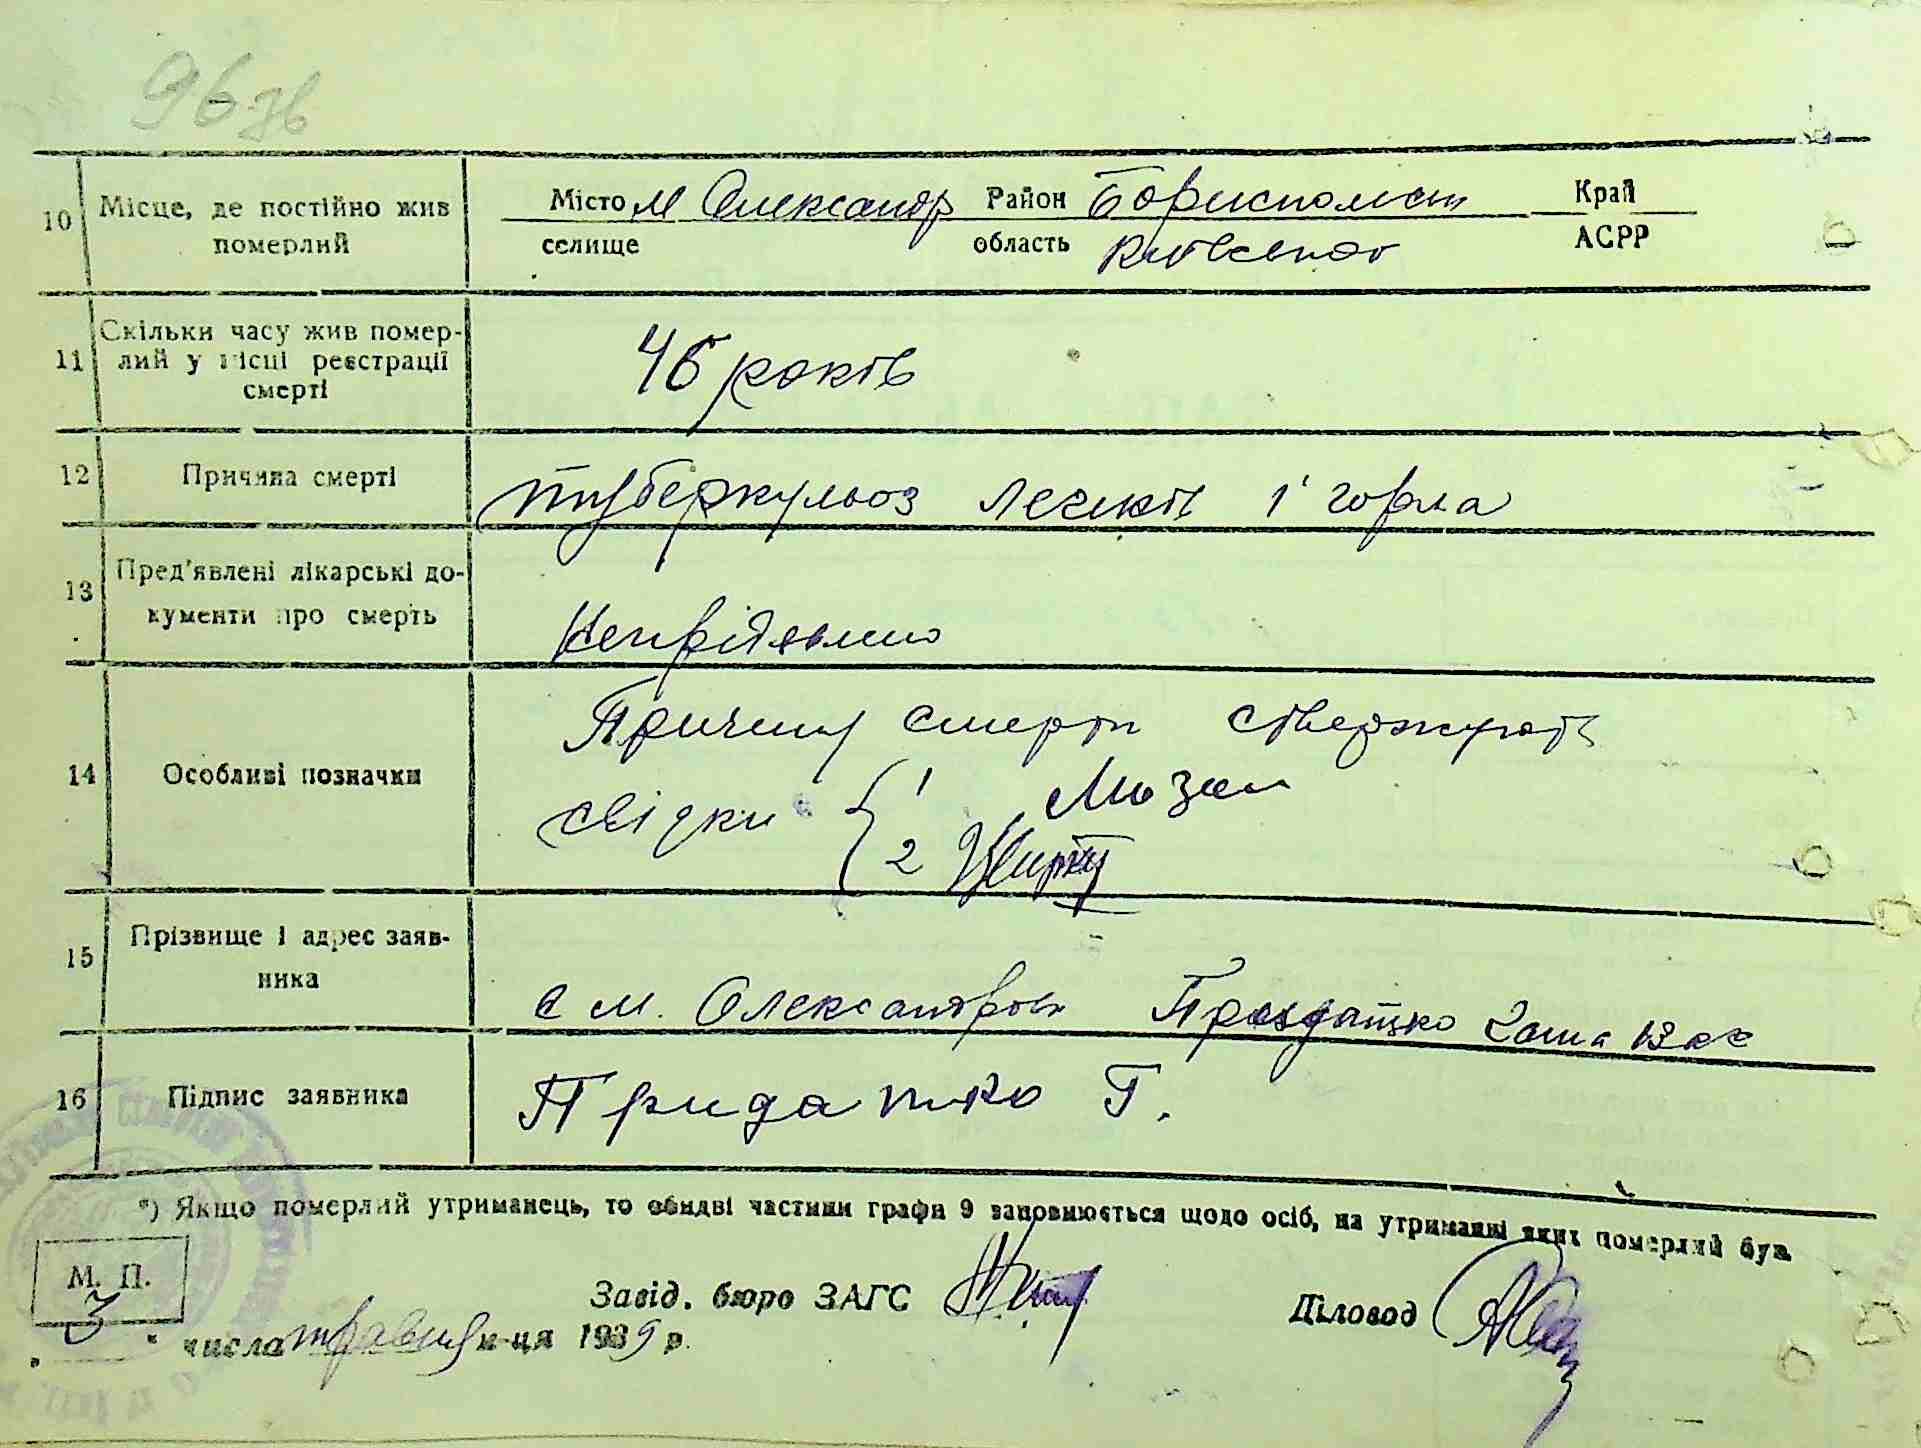 96 зв
10 Місце, де постійно жив померлий
Місто м Олександр Район Бориспольск Край
селище область Київської АСРР
11 Скільки часу жив помер-
лий у місці реєстрації
смерті
46 років
12 Причина смерті
туберкульоз легкіх і горла
13 Пред'явлені лікарські до-
кументи про смерть
14 Особливі позначки
Причину смерти ствержують
свідки 1
2
15 Прізвище і адрес заяв-
ника
с м. Олександровк
16 Підпис заявника
Придатко Г.
*) Якщо померлий утриманець, то обидві частини графи 9 заповнюється щодо осіб, на утриманні яких померлий був
М. П.
Завід. бюро ЗАГС
Діловод
" 3 " числа травня м-ця 1939 р.